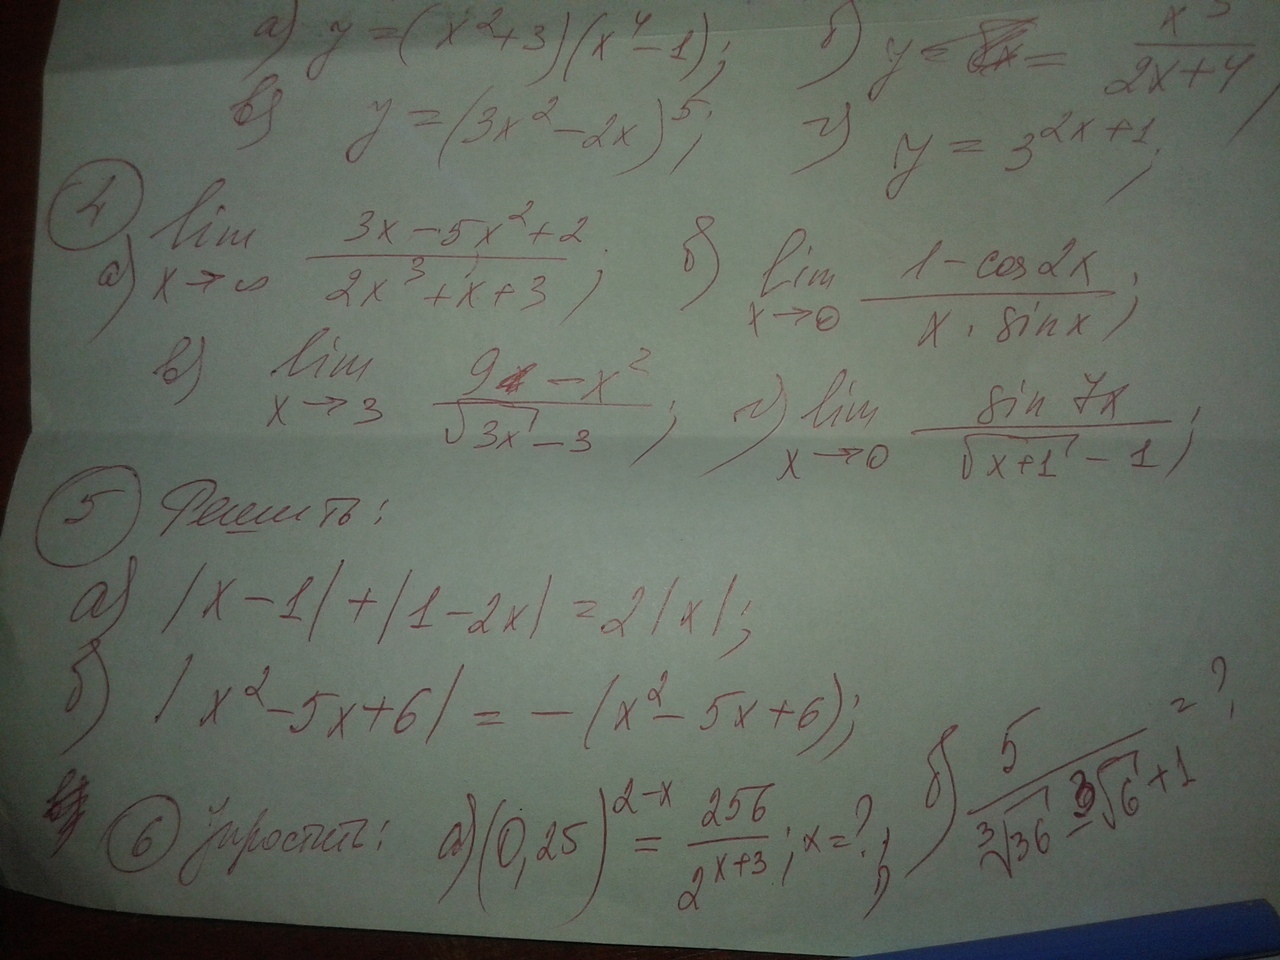 а) y = (x²+3)(x⁴-1); б) y = x³/(2x+4);
в) y = (3x²-2x)⁵; г) y = 3^(2x+1);
④
а) lim x→∞ (3x-5x²+2)/(2x³+x+3); б) lim x→0 (1-cos2x)/(x·sinx);
в) lim x→3 (9-x²)/(√3x-3); г) lim x→0 (sin7x)/(√x+1-1);
⑤ Решить:
а) |x-1|+|1-2x|=2|x|;
б) |x²-5x+6| = -(x²-5x+6);
⑥ Упростить: а) (0,25)^(2-x) = 256/2^(x+3); x=?; б) 5/(∛36-∛6+1) = ?;